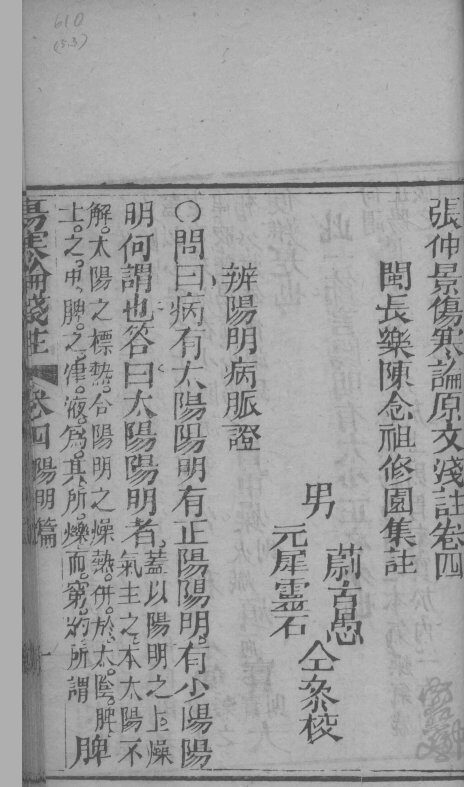 610
(5.3)
張仲景傷寒論原文淺註卷四
閩長樂陳念祖修園集註
男
蔚古愚
元犀靈石
仝叅校
辨陽明病脈證
○問曰病有太陽陽明有正陽陽明有少陽陽
明何謂也答曰太陽陽明者蓋以陽明之上燥
氣主之本太陽不
解太陽之標熱合陽明之燥熱併於太陰脾
土之中脾之津液為其所爍而窮約所謂
脾
傷寒論淺註
卷四
陽明篇
一